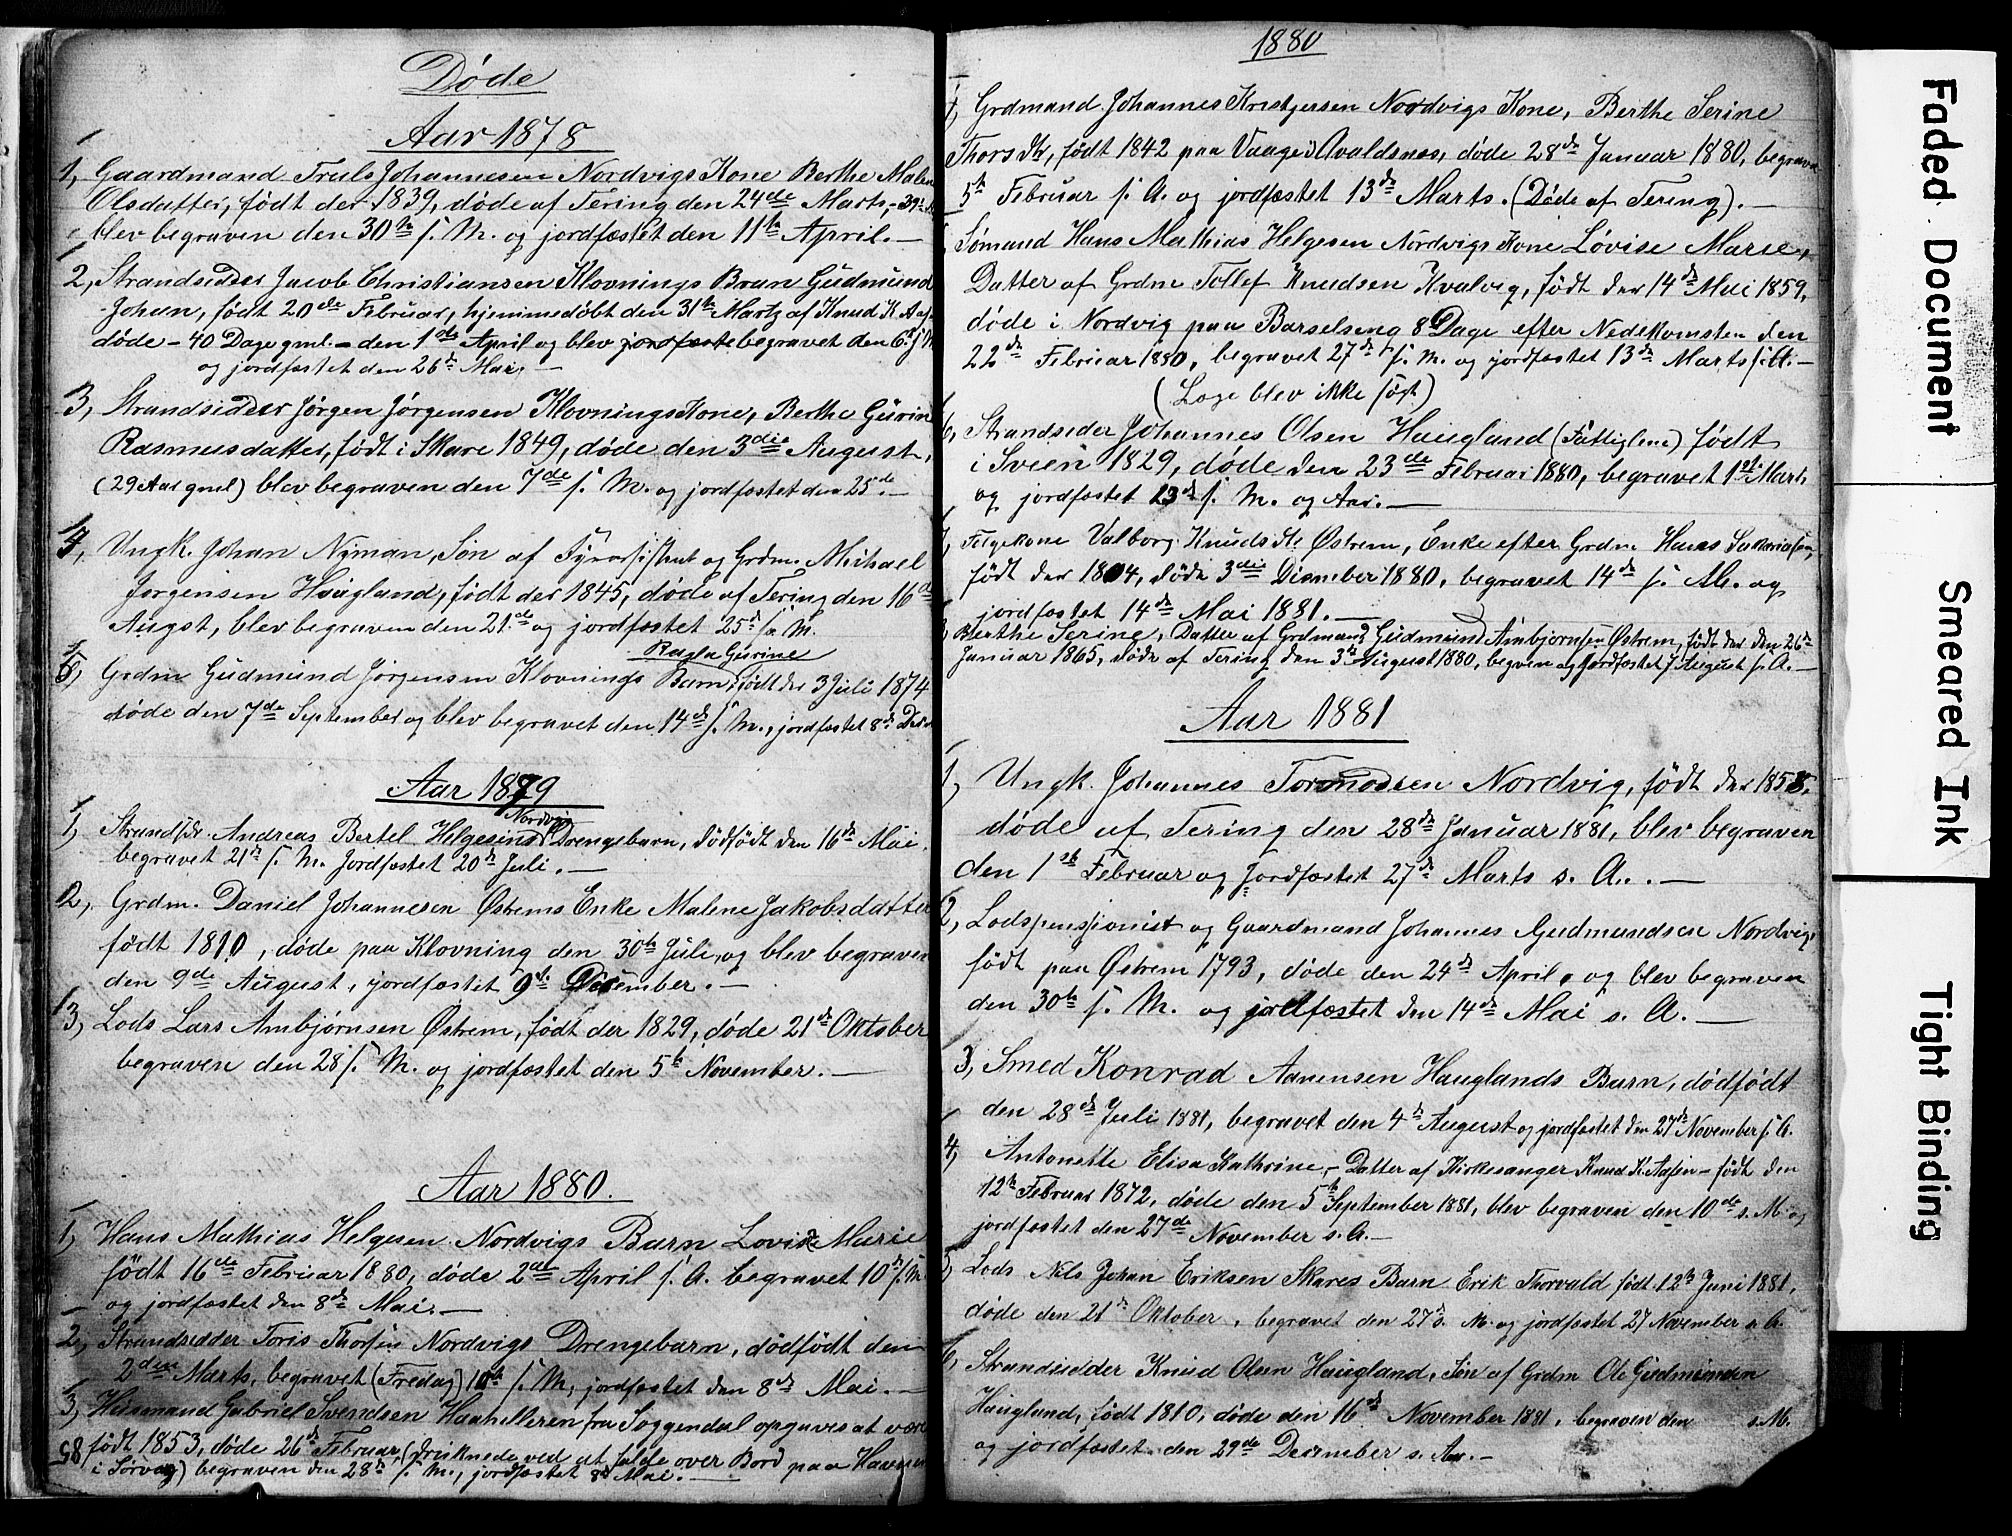 Døde
Aar 1878
1, Gaardmand Truls Johannesen Nordvigs Kone Berthe Malen
Olsdatter, født der 1839, døde af Tering den 24de Marts, - 39
blev begraven den 30te s. M. og jordfæstet den 11te April. —
2, Strandsidder Jacob Christiansen Klovnings Barn Gudmund
Johan, født 20de Februar, hjemmedøbt den 31te Marts af Knud K. Aa
døde - 40 Dage gml. - den 1ste April og blev jordfæste begravet den 6. s. M
og jordfæstet den 26de Mai. —
3, Strandsidder Jørgen Jørgensen Klovnings Kone, Berthe Gurin
Rasmusdatter, født i Skare 1849, døde den 3die August,
(29 Aar gml) blev begraven den 7de s. M. og jordfæstet den 25de. —
4, Ungk. Johan Nyman, Søn af Fyrassistent og Grdm. Michael
Jørgensen Haugland, født der 1845, døde af Tering den 16de
Augst, blev begraven den 21de og jordfæstet 25de s. M.
Ragla Gurine
5, Grdm Gudmund Jørgensen Klovnings Barn, født der 3 Juli 1874
døde den 7de September og blev begravet den 14de s. M., jordfæstet 8de De
Aar 1879
Nordvig
1, Strandsdr. Andreas Bertel Helgesens Drengebarn, dødfødt den 16de Mai,
begravet 21de s. M. Jordfæstet 20de Juli. —
2, Grdm. Daniel Johannesen Østrems Enke Malene Jakobsdatter
født 1810, døde paa Klovning den 30te Juli, og blev begraven
den 9de August, jordfæstet 9de December. —
3, Lods Lars Ambjørnsen Østrem, født der 1829, døde 21de Oktober
begraven den 28 s. M. og jordfæstet den 5te November. —
Aar 1880.
1, Hans Mathias Helgesen Nordvigs Barn Lovise Marie
født 16de Februar 1880, døde 2den April s. A. begravet 10de s. M.
og jordfæstet den 8de Mai. —
2, Strandsidder Toris Thorsen Nordvigs Drengebarn, dødfødt den
2den Marts, begravet (Fredag) 10te s. M, jordfæstet den 8de Mai. —
3, Husmand Gabriel Svendsen Haahelleren fra Soggendal opgaves at være
født 1853, døde 26de Februar, (druknede ved at falde over Bord paa Havnen
i Sørvag) begraven den 28de s. M., jordfæstet 8de Mai. —
58
1880
4, Grdmand Johannes Kristjersen Nordvigs Kone, Berthe Serine
Thorsdtr, født 1842 paa Vaage i Avaldsnes, døde 28de Januar 1880, begrave
5te Februar s. A. og jordfæstet 13de Marts. (Døde af Tering). —
Sømand Hans Mathias Helgesen Nordvigs Kone Lovise Marie,
Datter af Grdm Tollef Knudsen Kvalvig, født der 14de Mai 1859,
døde i Nordvig paa Barselseng 8 Dage efter Nedekomsten den
22de Februar 1880, begravet 27de s. M. og jordfæstet 13de Marts s. A. —
(Læge blev ikke søgt)
6, Strandsider Johannes Olsen Haugland (Fattiglem) født
i Sveen 1829, døde den 23de Februar 1880, begravet 1ste Marts
og jordfæstet 13de s. M. og Aar. —
7, Følgekone Valborg Knudsdtr. Østrem, Enke efter Grdm Hans Sakariasen,
født der 1804, døde 3die December 1880, begravet 14de s. M. og
jordfæstet 14de Mai 1881. —
8, Berthe Serine, Datter af Grdmand Gudmund Ambjørnsen Østrem, født der den 26de
Januar 1865, døde af Tering den 3die August 1880, begraven og jordfæstet August s. A. —
Aar 1881
1, Ungk. Johannes Tormodsen Nordvig, født der 1858,
døde af Tering den 28de Januar 1881, blev begraven
den 1ste Februar og Jordfæstet 27de Marts s. A. —
2, Lodspensjonist og Gaardmand Johannes Gudmundsen Nordvig,
født paa Østrem 1793, døde den 24de April, og blev begraven
den 30te s. M. og jordfæstet den 14de Mai s. A. —
3, Smed Konrad Aanensen Hauglands Barn, dødfødt
den 28de Juli 1881, begravet den 4de August og jordfæstet den 27de November s. A.
4, Antonette Elisa Kathrine, - Datter af Kirkesanger Knud K. Aasen - født den
12te Februar 1872, døde den 5te September 1881, blev begraven den 10de s. M. og
jordfæstet den 27de November s. A. —
5, Lods Nils Johan Eriksen Skares Barn Erik Thorvald født 12te Juni 1881,
døde den 21de Oktober, begravet den 27de s. M. og jordfæstet 27 November s. A.
6, Strandsidder Knud Olsen Haugland, Søn af Grdm Ole Gudmundsen
Haugland, født 1810, døde den 16de November 1881, begraven den s. M.
og jordfæstet den 29de December s. Aar. —
Faded Document
Smeared Ink
Tight Binding